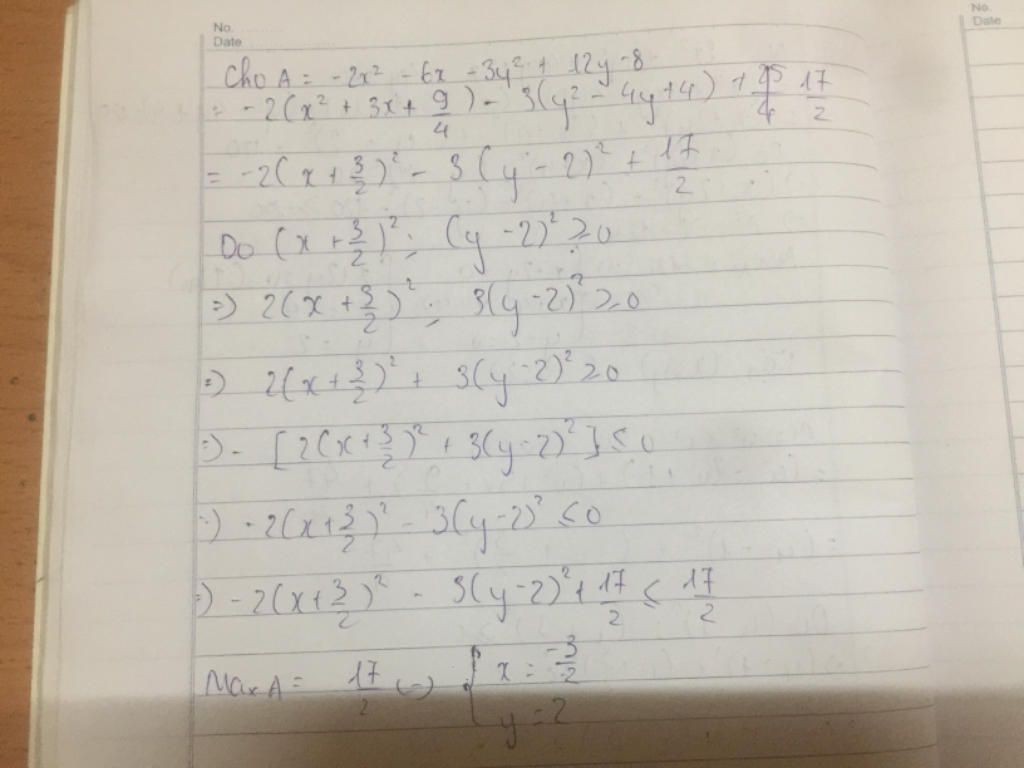 No.
Date
No.
Date
Cho A = -2x² - 6x - 3y² + 12y - 8
= -2(x² + 3x + 9/4) - 3(y² - 4y + 4) + 17/2
= -2(x + 3/2)² - 3(y - 2)² + 17/2
Do (x + 3/2)² ; (y - 2)² ≥ 0
=> 2(x + 3/2)² ; 3(y - 2)² ≥ 0
=> 2(x + 3/2)² + 3(y - 2)² ≥ 0
=> - [2(x + 3/2)² + 3(y - 2)²] ≤ 0
=> -2(x + 3/2)² - 3(y - 2)² ≤ 0
=> -2(x + 3/2)² - 3(y - 2)² + 17/2 ≤ 17/2
Max A = 17/2 (=) { x = -3/2
y = 2